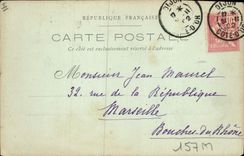 RÉPUBLIQUE FRANÇAISE
CARTE POSTALE
Ce côté est exclusivement réservé à l'adresse
DIJON
COTE-D'OR
Monsieur Jean Maurel
32, rue de la République
Marseille
Bouches du Rhône
157M